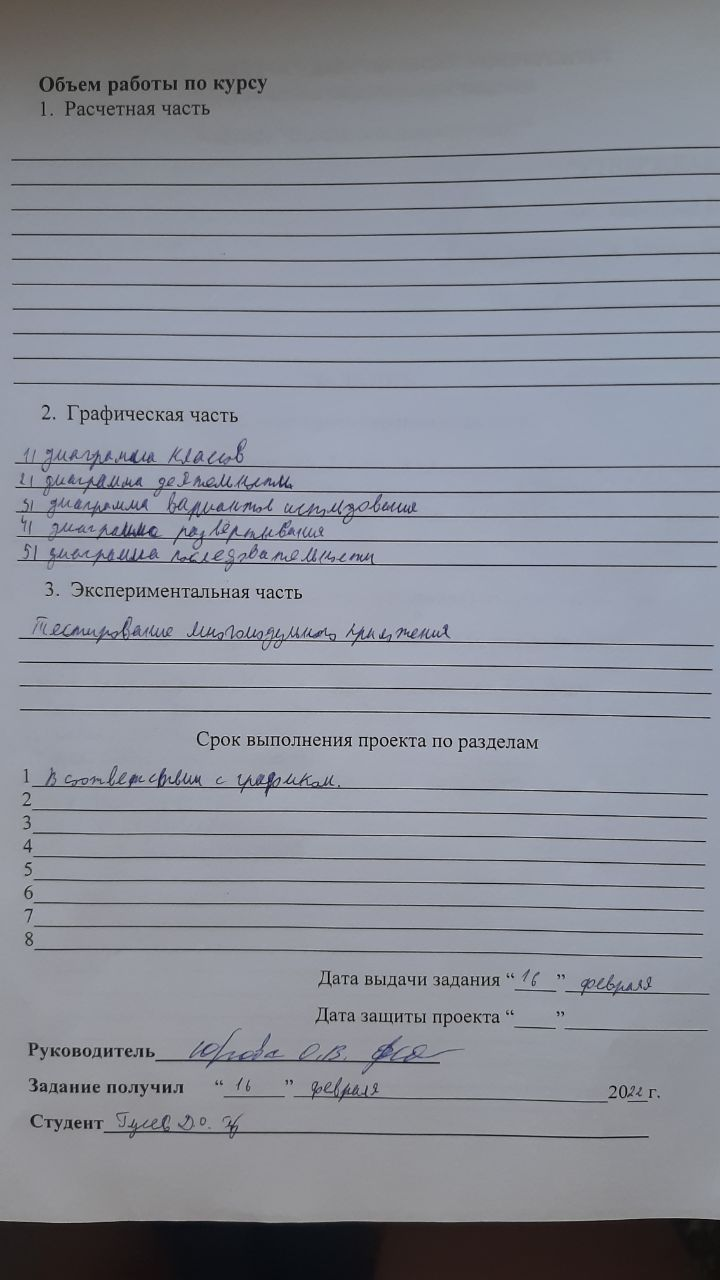 Объем работы по курсу
1. Расчетная часть
2. Графическая часть
1) диаграмма классов
2) диаграмма деятельности
3) диаграмма вариантов использования
4) диаграмма развертывания
5) диаграмма последовательности
3. Экспериментальная часть
Тестирование многомодульного приложения
Срок выполнения проекта по разделам
1 В соответствии с графиком.
2
3
4
5
6
7
8
Дата выдачи задания “16” февраля
Дата защиты проекта “____”
Руководитель Юрова О.В.
Задание получил “16” февраля 2022 г.
Студент Гусев Д.О.